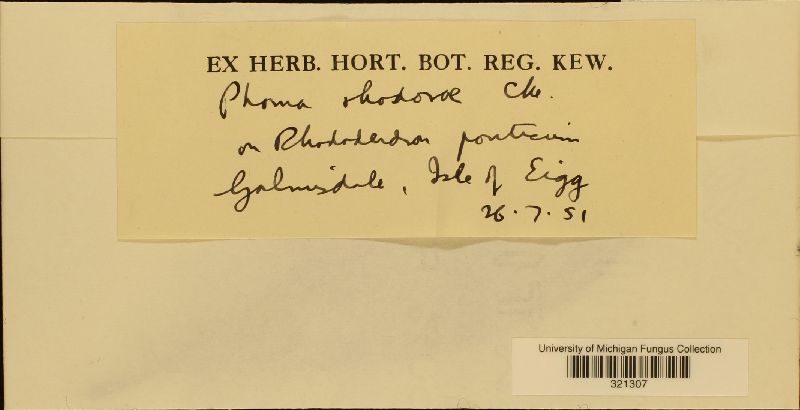 EX HERB. HORT. BOT. REG. KEW.
Phoma rhodorae Cke.
on Rhododendron ponticum
Galmisdale, Isle of Eigg
26.7.51
University of Michigan Fungus Collection
321307